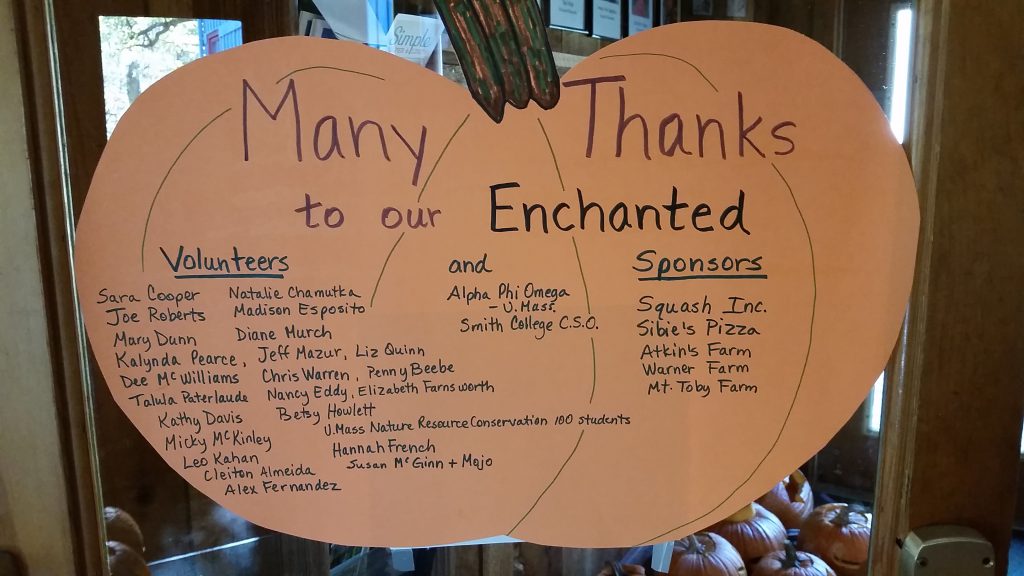 Simple
Many Thanks
to our Enchanted
Volunteers
Sara Cooper Natalie Chamutka
Joe Roberts Madison Esposito
Mary Dunn Diane Murch
Kalynda Pearce, Jeff Mazur, Liz Quinn
Dee McWilliams Chris Warren, Penny Beebe
Talula Paterlaude Nancy Eddy, Elizabeth Farnsworth
Kathy Davis Betsy Howlett
U.Mass Nature Resource Conservation 100 students
Micky McKinley Hannah French
Leo Kahan Susan McGinn + Mojo
Cleiton Almeida
Alex Fernandez
and
Alpha Phi Omega
- U.Mass.
Smith College C.S.O.
Sponsors
Squash Inc.
Sibie's Pizza
Atkin's Farm
Warner Farm
Mt. Toby Farm